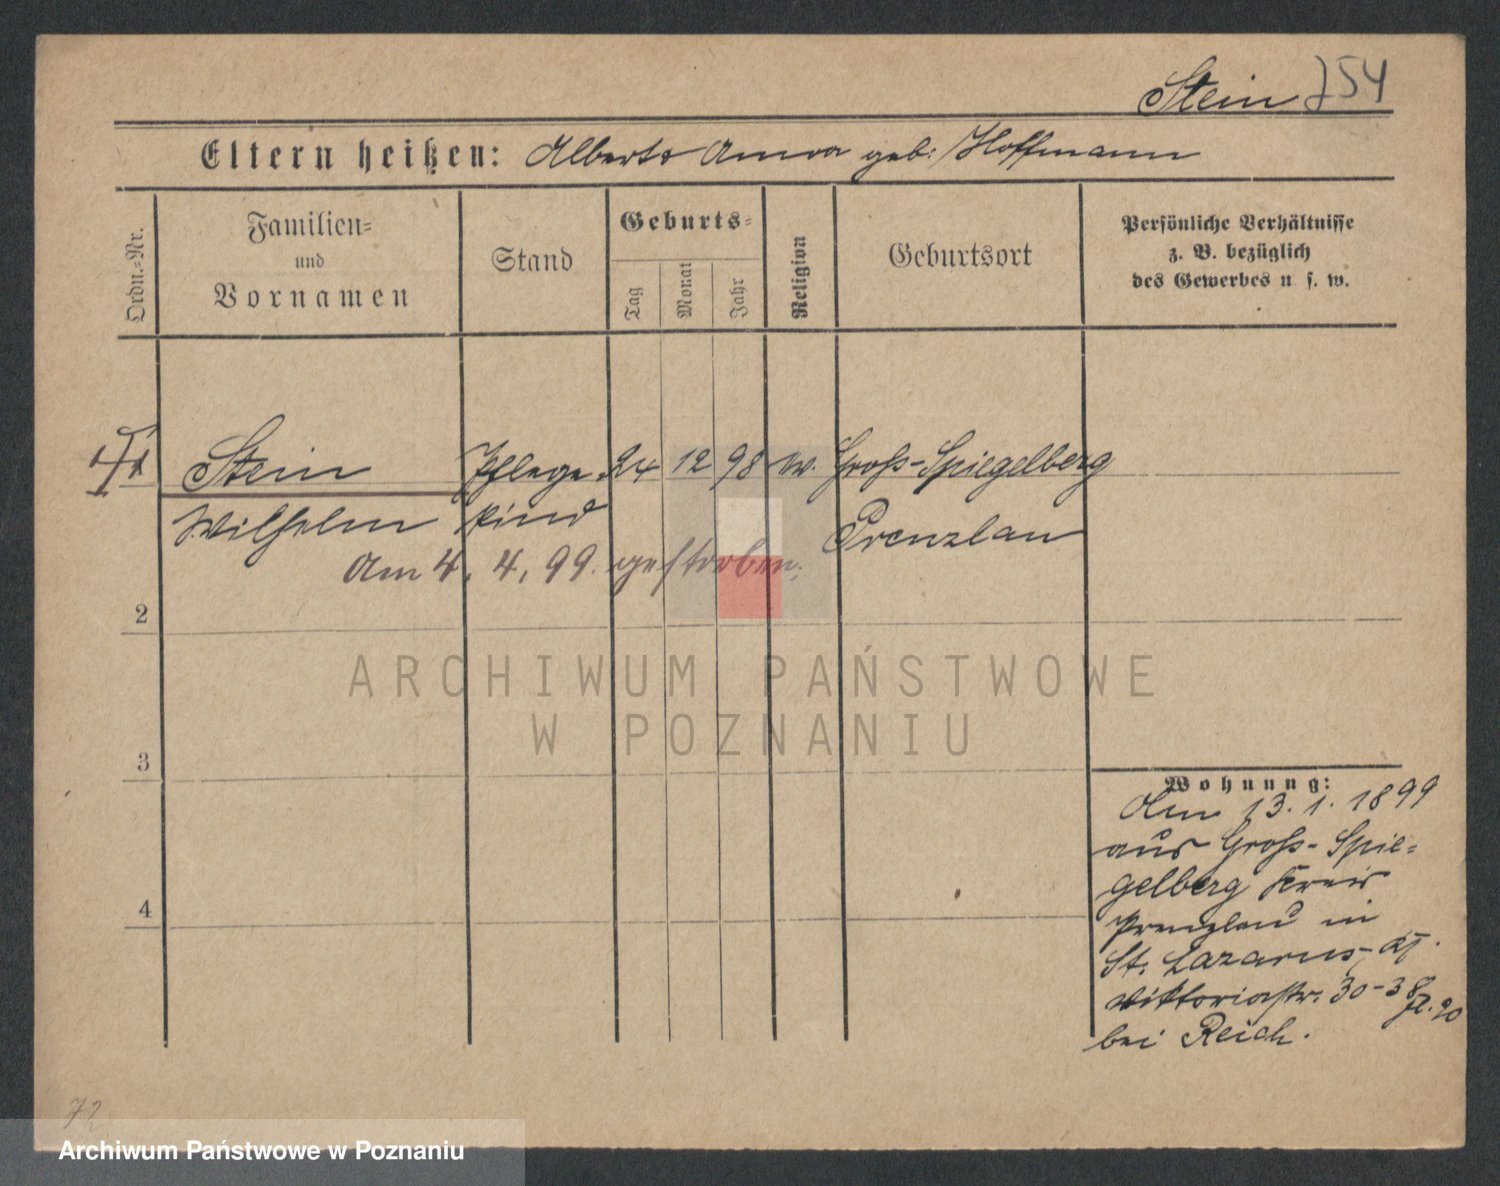 Stein 754
Eltern heißen: Alberto Anna geb: Hoffmann
Ordn.-Nr.
Familien-
und
Vornamen
Stand
Geburts-
Tag
Monat
Jahr
Religion
Geburtsort
Persönliche Verhältnisse
z. B. bezüglich
des Gewerbes u s. w.
Stein Pflege 24 12 98 Gross-Spiegelberg
Wilhelm kind Prenzlau
Am 4. 4. 99. gestorben.
2
3
4
Wohnung:
Am 13. 1. 1899
aus Gross-Spie-
gelberg Kreis
Prenzlau in
St. Lazarus,
Viktoriastr. 30-38
bei Reich.
72
ARCHIWUM PAŃSTWOWE
W POZNANIU
Archiwum Państwowe w Poznaniu